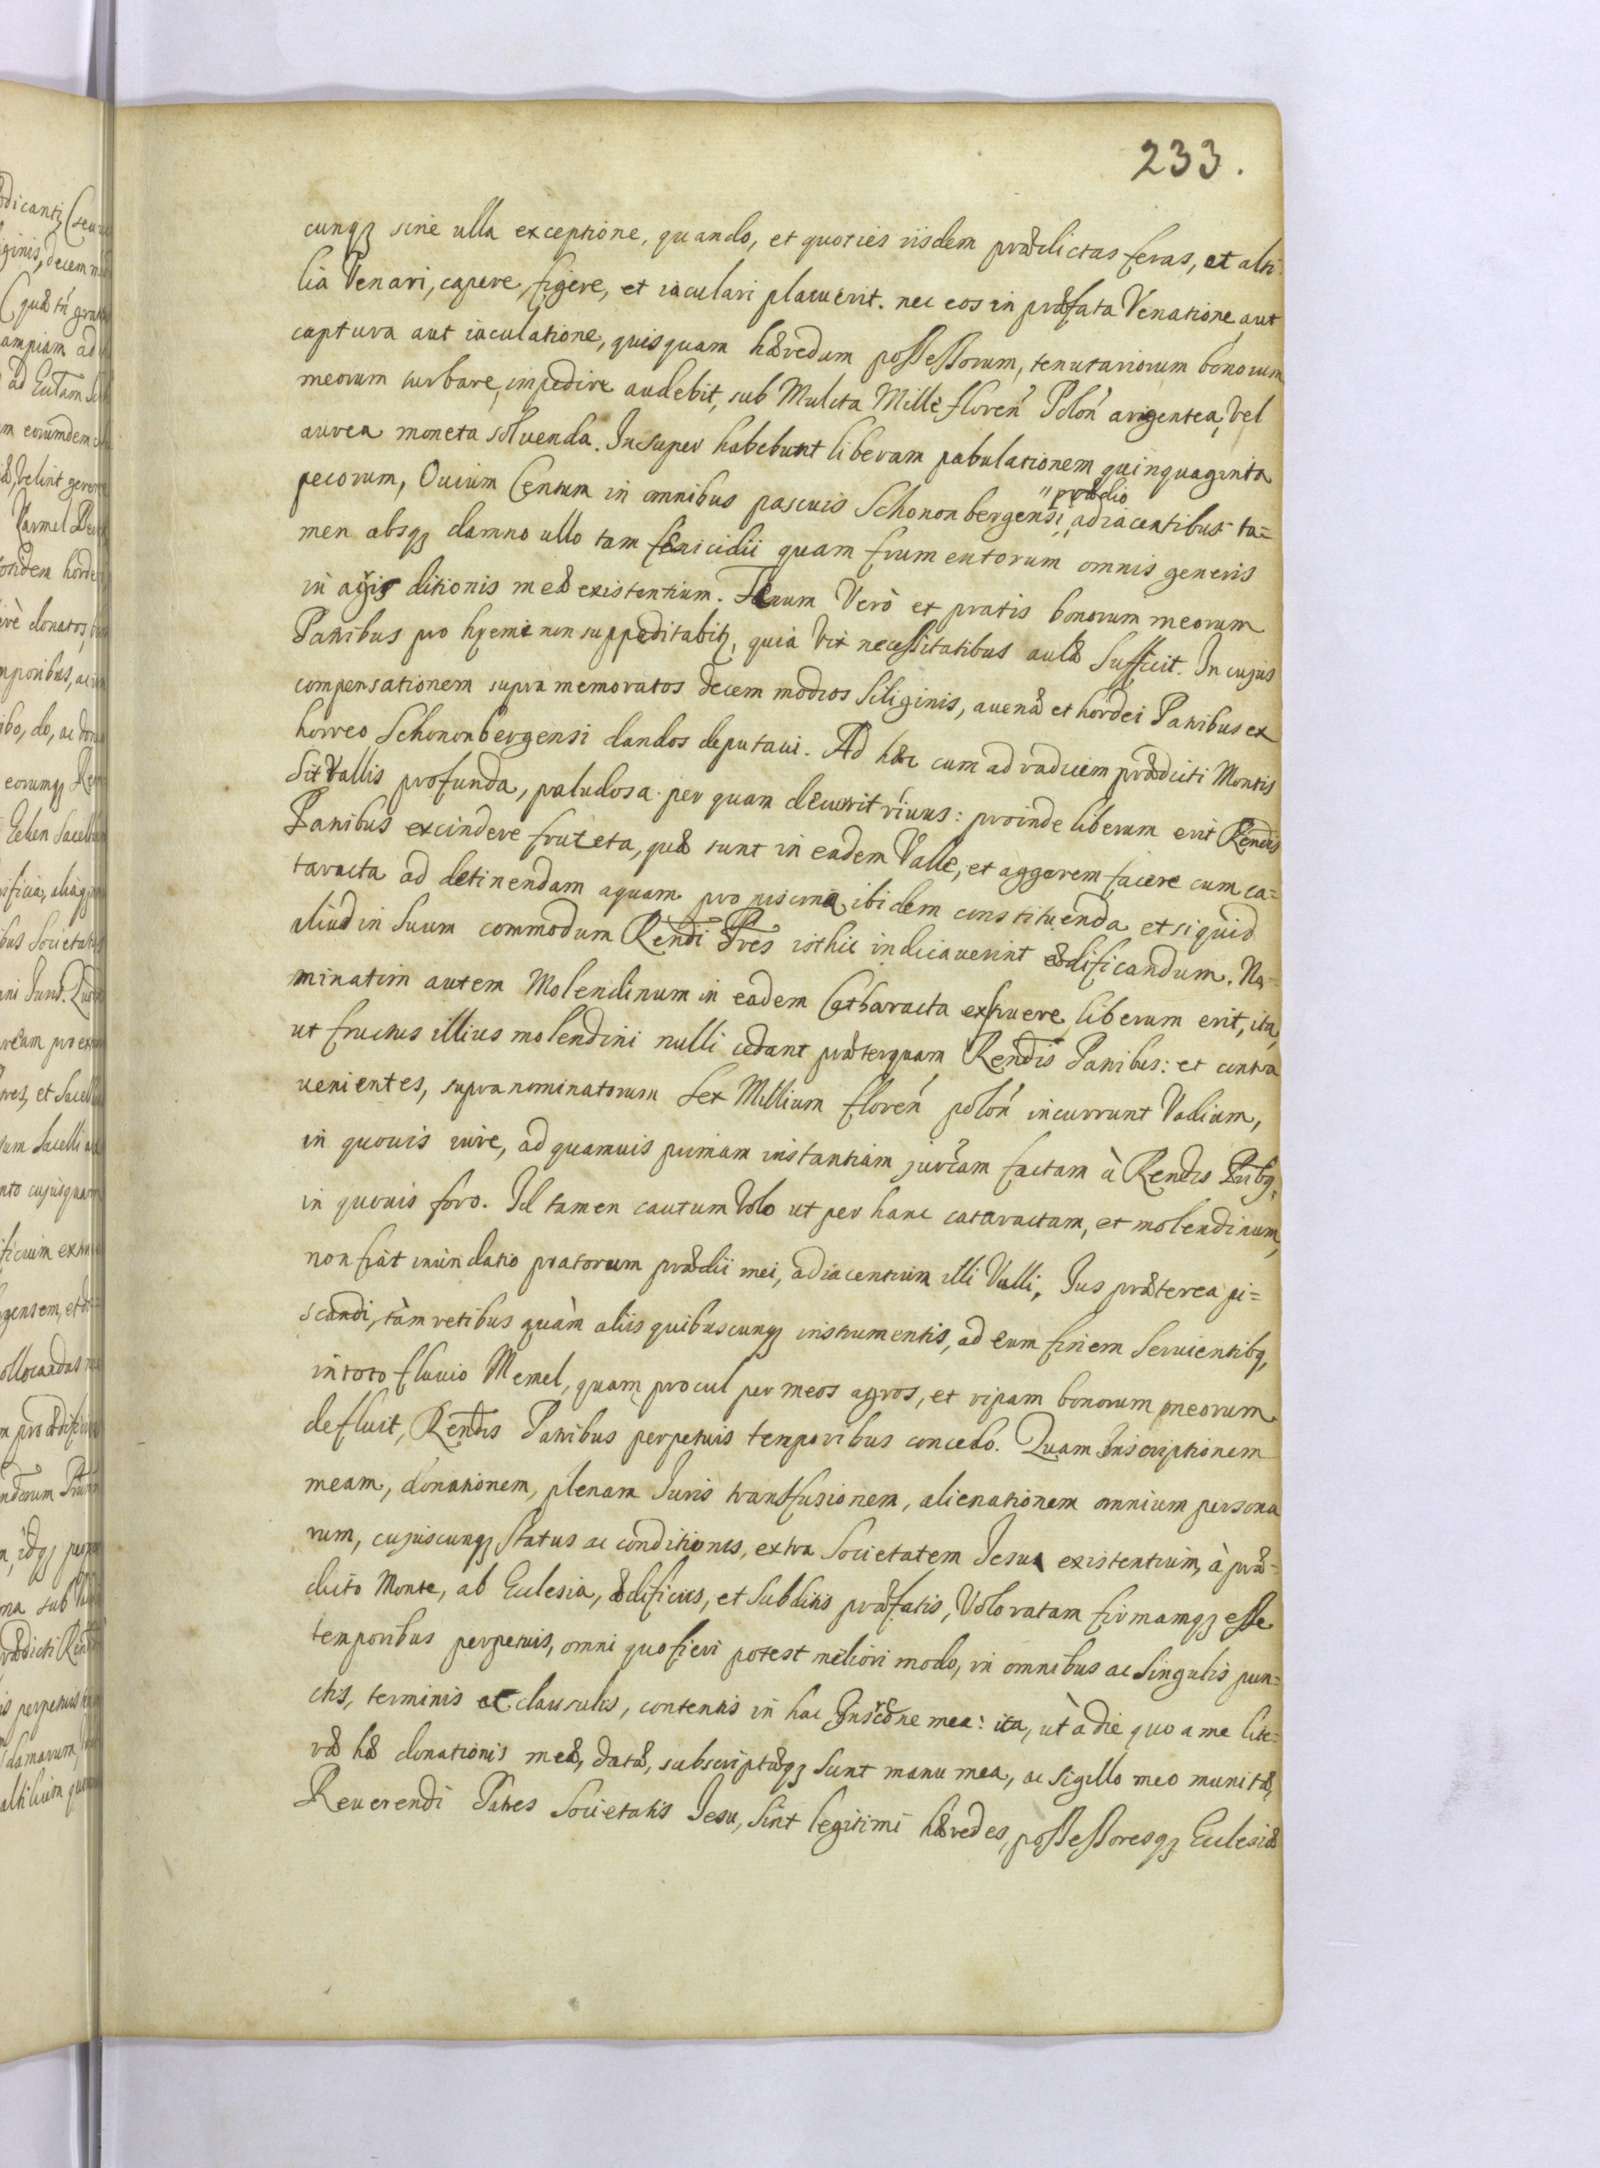 233.
cunqȝ sine ulla exceptione, quando, et quoties iisdem prædictas feras, et alti
lia Venari, capere, figere, et iaculari placuerit. nec eos in præfata Venatione, aut
captura aut iaculatione, quisquam hæredum possessorum, tenutariorum bonorum
meorum turbare, impedire audebit, sub Mulcta Mille floren̄ Polon̄ argentea, Vel
aurea moneta soluenda. Insuper habebunt liberam pabulationem quinquaginta
pecorum, Ouium Centum in omnibus pascuis Schononbergensi "prædio adiacentibus ta=
men absqȝ damno ullo tam fænicidii quam frumentorum omnis generis
in agris ditionis meæ existentium. Fænum Verò et pratis bonorum meorum
Patribus pro hyeme non suppeditabitȝ, quia Vix necessitatibus aulæ Sufficit. In cujus
compensationem supra memoratos decem modios Siliginis, auenæ et hordei Patribus ex
horreo Schononbergensi dandos deputaui. Ad hæc cum ad radicem prædicti Montis
Sit Vallis profunda, paludosa per quam decurrit riuus: proinde liberum erit Rendis
Patribus excindere fruteta, quæ sunt in eadem Valle, et aggerem facere cum ca=
taracta ad detinendam aquam pro piscina ibidem constituenda et si quid
aliud in Suum commodum Rendi Pres isthic indicauerint ædificandum. No-
minatim autem Molendinum in eadem Catharacta exstruere liberum erit, ita,
ut fructus illius molendini nulli cedant præterquam Rendis Patribus: et contra
uenientes, supra nominatorum Sex Millium floren̄ polon̄ incurrunt Vadium,
in quouis iure, ad quamuis primam instantiam jurcam factam à Rendis Pribȝ,
in quouis foro. Id tamen cautum Volo ut per hanc cataractam, et molendinum,
non fiat inundatio pratorum prædii mei, adiacentium illi Valli, Jus præterea pi=
scandi, tàm retibus quàm aliis quibuscunqȝ instrumentis, ad eum finem Seruientibȝ,
in toto fluuio Memel, quam procul per meos agros, et ripam bonorum meorum
defluit, Rendis Patribus perpetuis temporibus concedo. Quam Inscriptionem
meam, donationem, plenam Iuris transfusionem, alienationem omnium persona
rum, cujuscunqȝ Status ac conditionis, extra Societatem Jesu existentium, à præ-
dicto Monte, ab Eclesia, ædificiis, et Subditis præfatis, Volo ratam firmamqȝ esse
temporibus perpetuis, omni quo fieri potest meliori modo, in omnibus ac Singulis pun=
ctis, terminis et clausulis, contentis in hac Inscr̄one mea: ita, ùt à die quo a me lite=
ræ hæ donationis meæ, datæ, subscriptæqȝ Sunt manu mea, ac Sigillo meo munitæ,
Reuerendi Patres Societatis Jesu, Sint legitimi hæredes, possessoresqȝ Eclesiæ